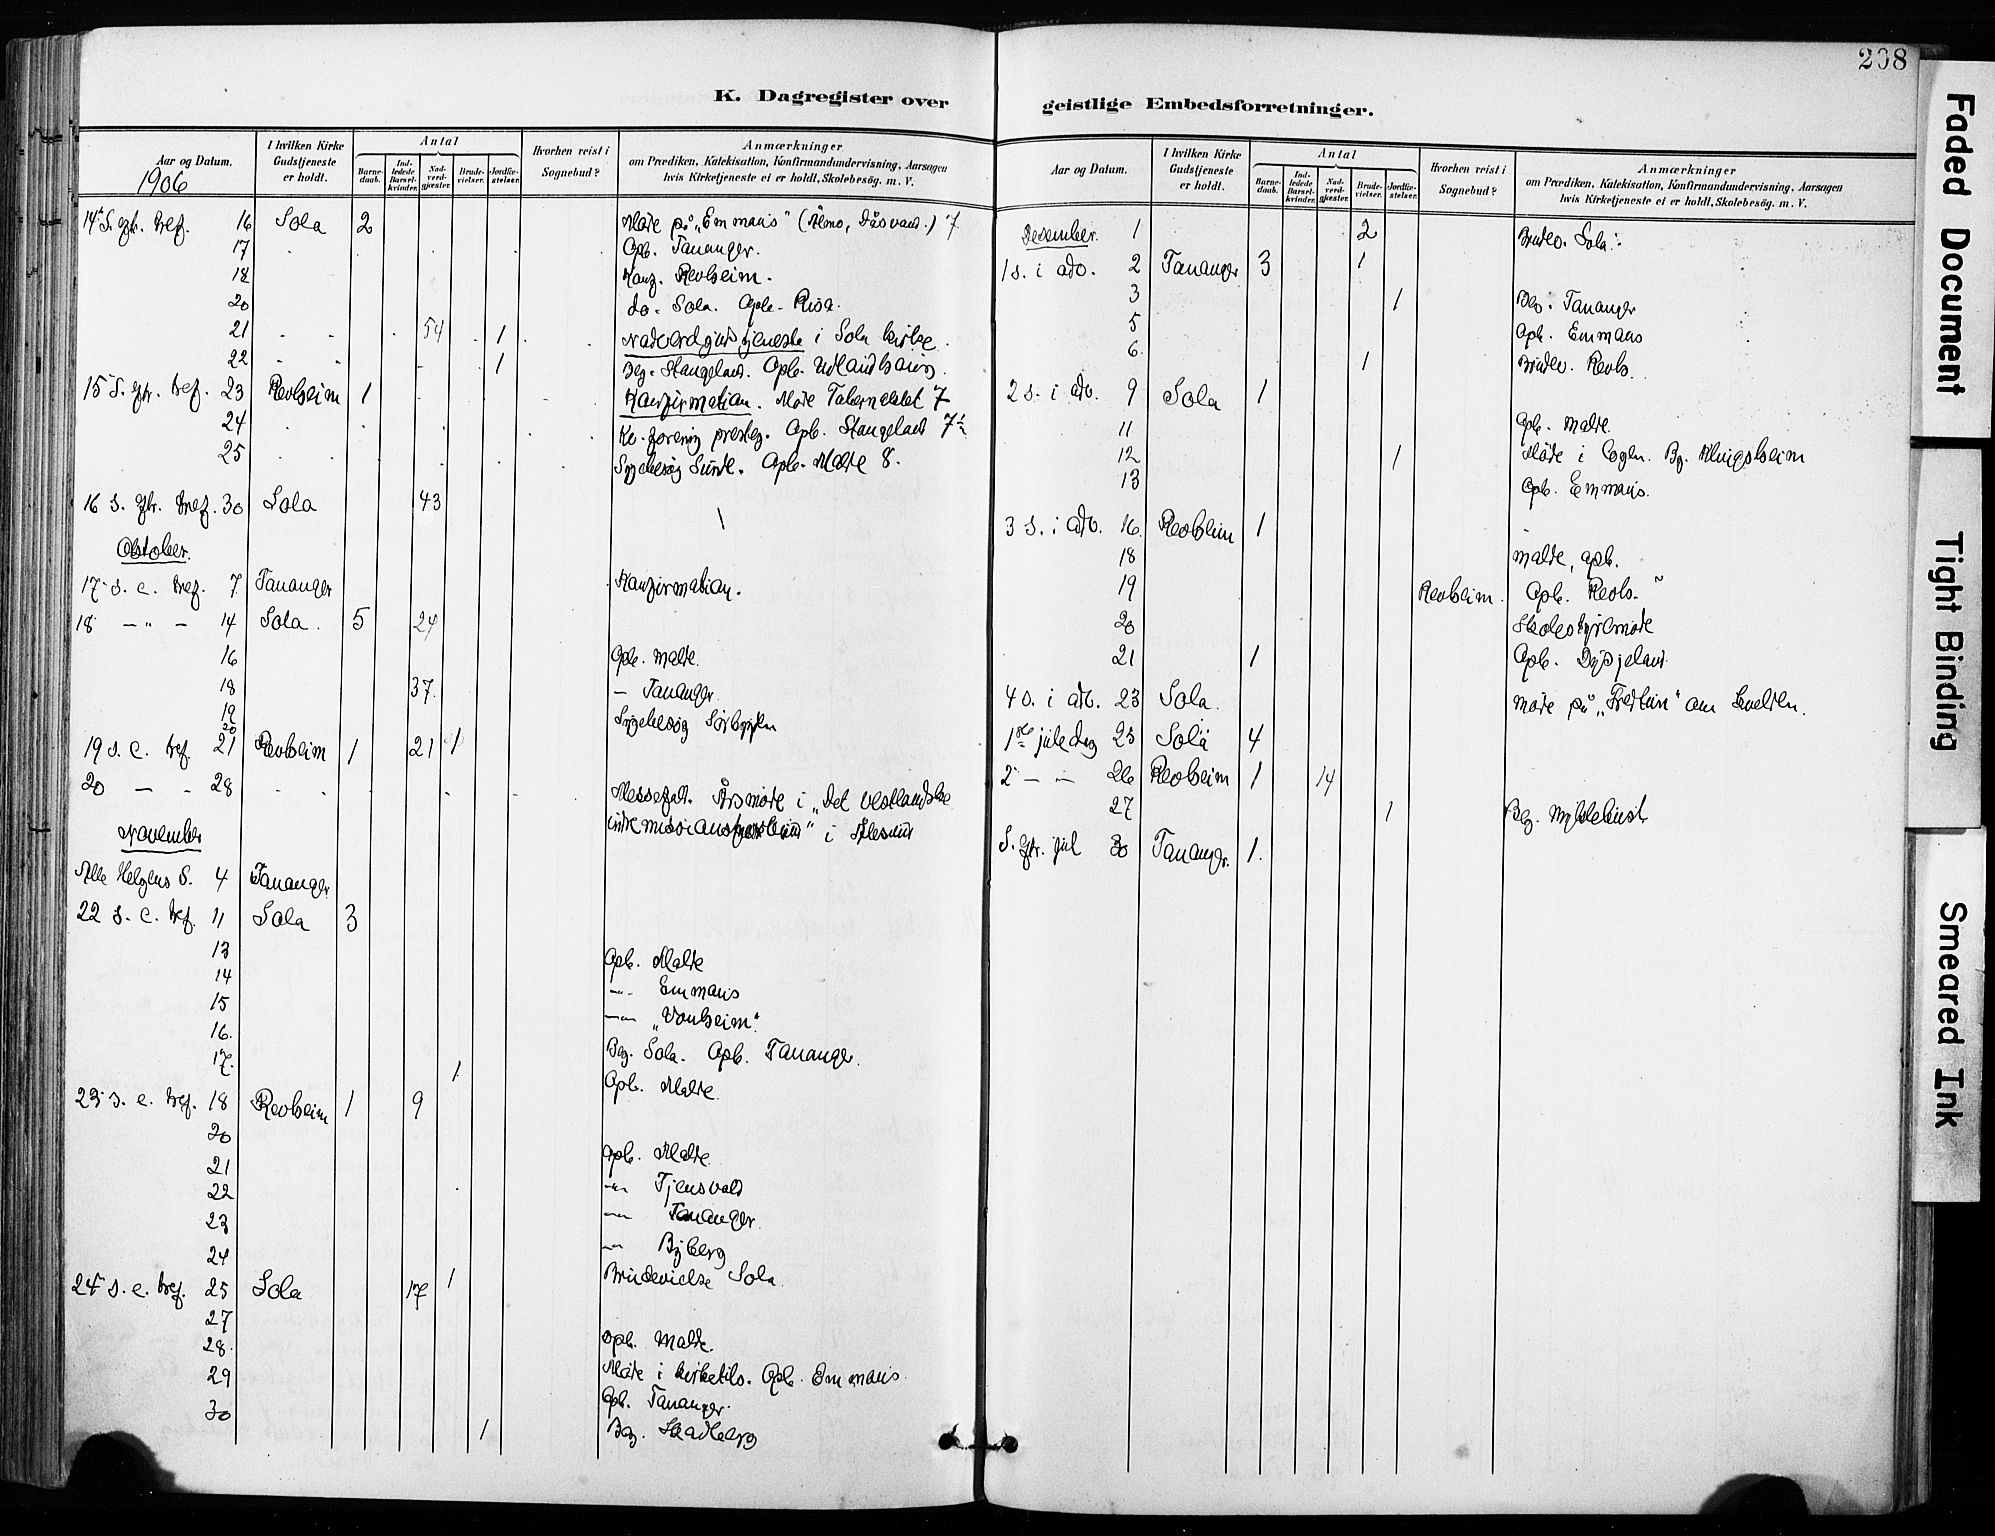 208
K. Dagregister over geistlige Embedsforretninger.
Aar og Datum.
I hvilken Kirke Gudstjeneste er holdt.
Antal
Barnedaab.
Indledede Barselkvinder.
Nadverdgjester.
Brudevielser.
Jordfæstelser.
Hvorhen reist i Sognebud?
Anmærkninger
om Prædiken, Katekisation, Konfirmandundervisning, Aarsagen
hvis Kirketjeneste ei er holdt, Skolebesøg. m. V.
1906
14 S. eftr. tref. 16 Sola 2 Møte på "Emmaus" 7
17 Opb. Tananger.
18 Konf. Revheim.
20 do. Sola. Opb. Risa.
21 54 1 Nadverdgudstjeneste i Sola kirke.
22 1 Beg. Stangeland. Opb.
15 S. eftr. tref. 23 Revheim 1 Konfirmation. Møte Tabernaklet 7
24 Kv. forening presteg. Opb. Stangeland 7½
25 Sygebesøg Sunde. Opb. Malde 8.
16 S. eftr. tref. 30 Sola 43
Oktober.
17 s. e. tref. 7 Tananger Konfirmation.
18 — " — 14 Sola. 5 24
16 Opb. Malde.
18 37. — Tananger.
19 Sygebesøg Sørbygden
20
19 s. e. tref. 21 Revheim 1 21 1
20 — - 28 Messefald. Årsmøte i "Det vestlandske
indremissionsforbund" i Ålesund
November
Alle Helgens S. 4 Tananger
22 s. e. tref. 11 Sola 3
13 Opb. Malde
14 — " — Emmaus
15 — " — "Vonheim".
16. Beg. Sola. Opb. Tananger.
17. 1 Opb. Malde.
23 s. e. tref. 18 Revheim 1 9
20 Opb. Malde.
21 — " — Tjensvold
22 — " — Tananger.
23 — " — Byberg
24 1 Brudevielse Sola.
24 s. e. tref. 25 Sola 17
27 Opb. Malde.
28. Møte i kirketils. Opb. Emmaus.
29 Opb. Tananger.
30 1 Beg. Skadberg
Aar og Datum.
I hvilken Kirke Gudstjeneste er holdt.
Antal
Barnedaab.
Indledede Barselkvinder.
Nadverdgjester.
Brudevielser.
Jordfæstelser.
Hvorhen reist i Sognebud?
Anmærkninger
om Prædiken, Katekisation, Konfirmandundervisning, Aarsagen
hvis Kirketjeneste ei er holdt, Skolebesøg. m. V.
Desember. 1 2 Brudev. Sola.
1 s. i adv. 2 Tananger 3 1
3 1 Beg. Tananger
5 Opb. Emmaus
6. 1 Brudev. Revh.
2 s. i adv. 9 Sola 1
11 Opb. Malde.
12 1 Møte i Beg. Klingsheim
13 Opb. Emmaus.
3 s. i adv. 16 Revheim 1
18 Malde, opb.
19 Revheim. Opb. Revh.
20 Skolestyremøte
21 1 Opb. Dysjeland.
4 s. i adv. 23 Sola. Møte på "Fredtun" om kvelden.
1ste juledag 25 Sola 4
2 — — 26 Revheim 1 14
27 1 Beg. Myklebust
S. eftr. jul 30 Tananger. 1.
Faded Document
Tight Binding
Smeared Ink